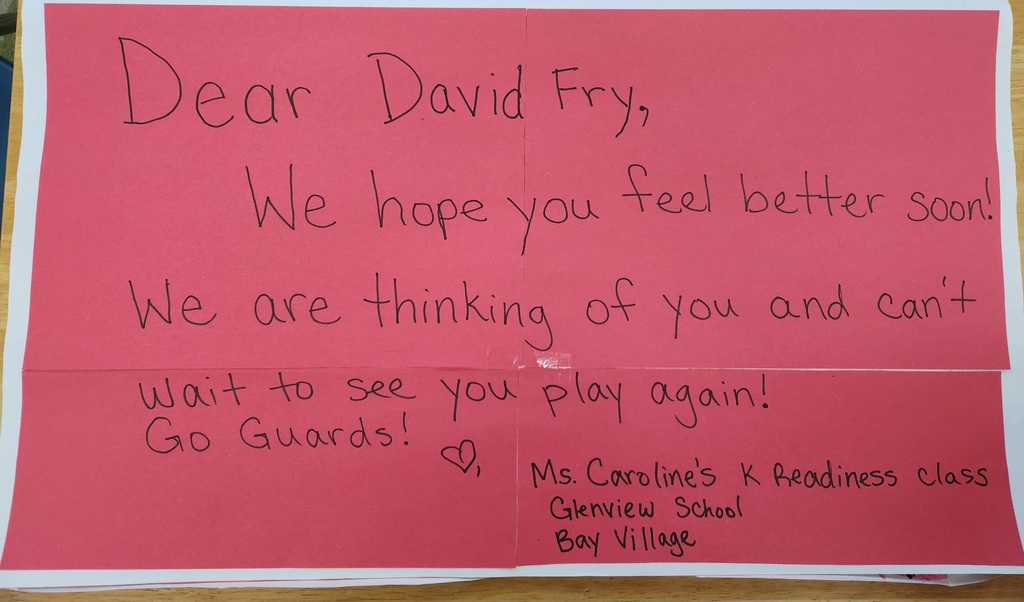 Dear David Fry,
We hope you feel better soon!
We are thinking of you and can't
wait to see you play again!
Go Guards!
♡,
Ms. Caroline's K Readiness Class
Glenview School
Bay Village